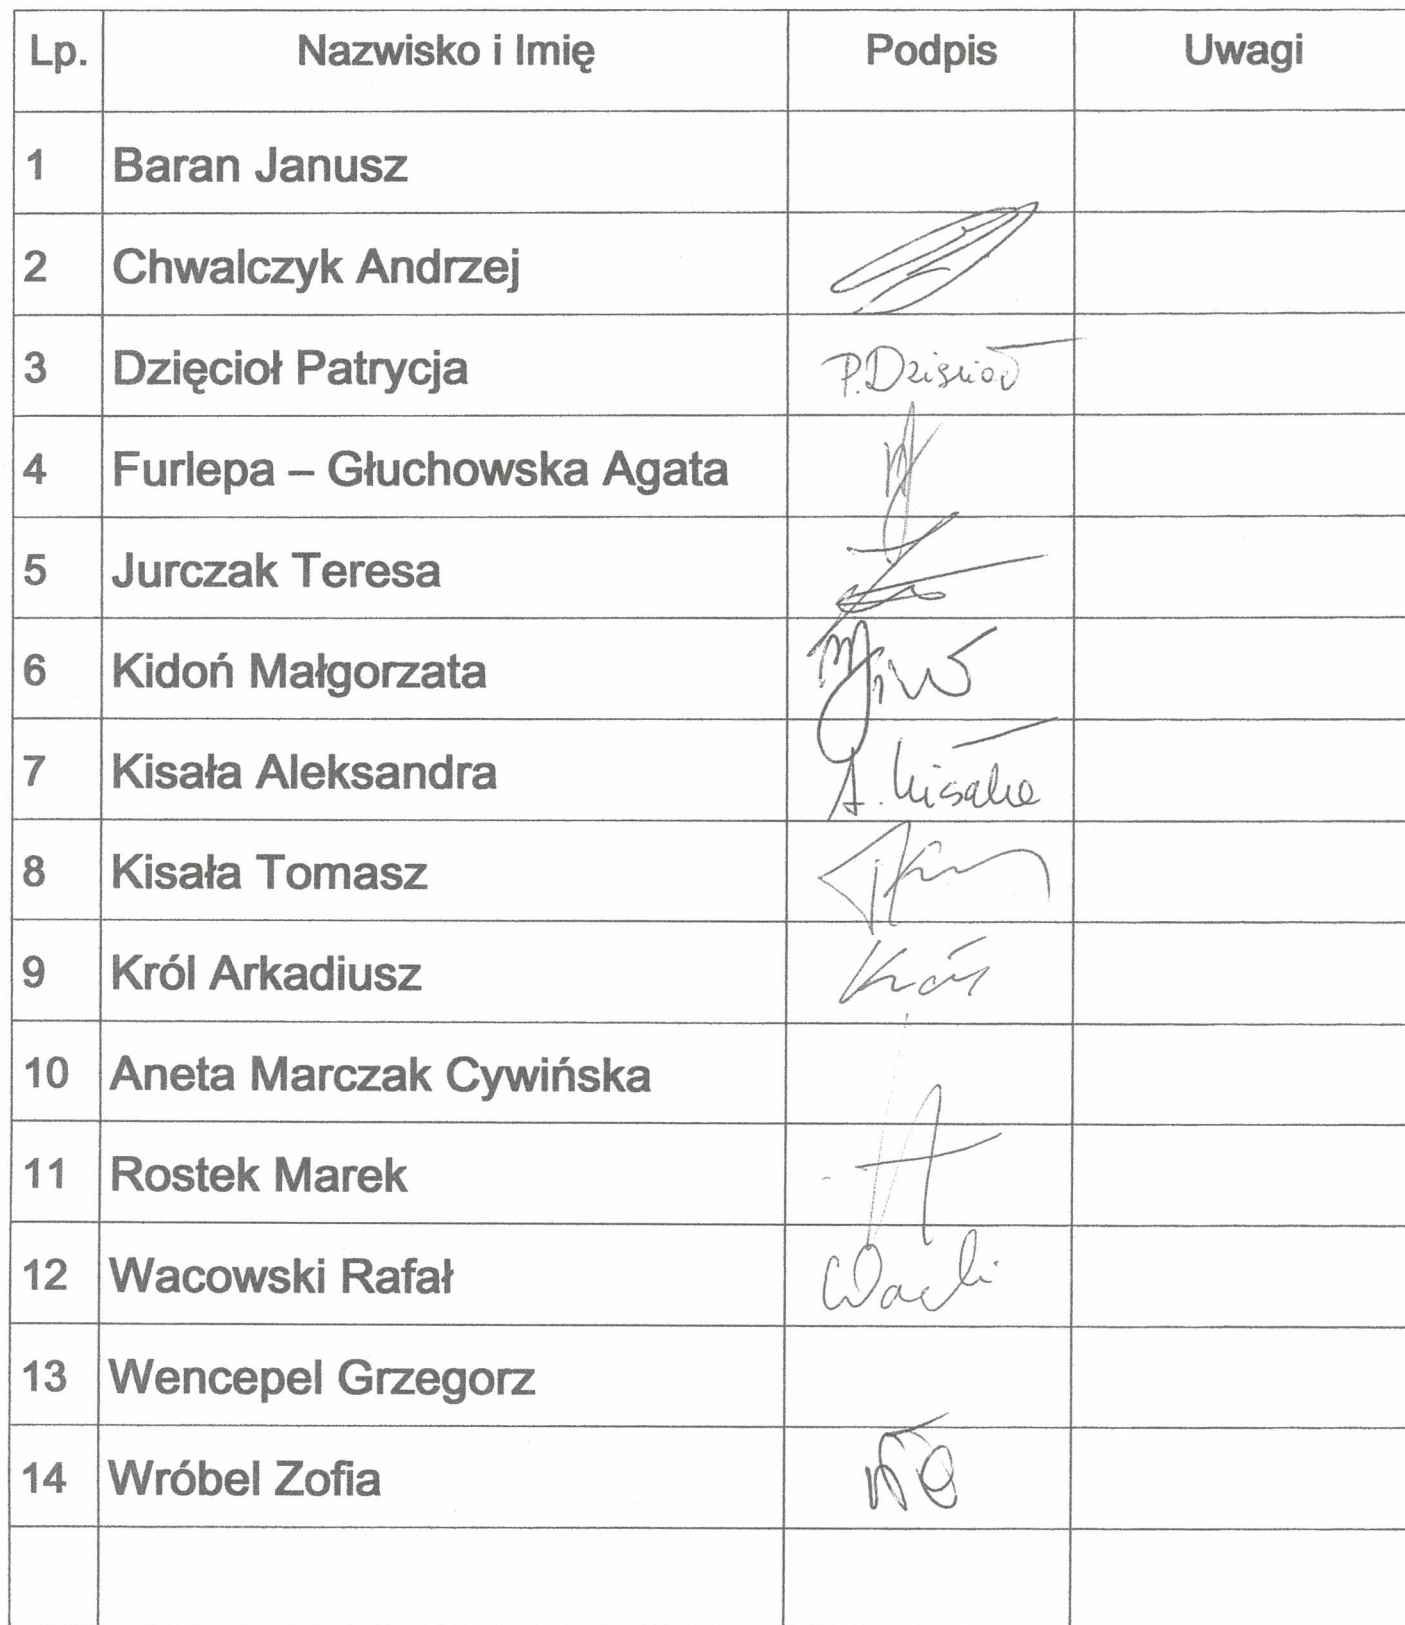 Lp. Nazwisko i Imię Podpis Uwagi
1 Baran Janusz
2 Chwalczyk Andrzej
3 Dzięcioł Patrycja P.Dzięcioł
4 Furlepa – Głuchowska Agata
5 Jurczak Teresa
6 Kidoń Małgorzata
7 Kisała Aleksandra A. Kisała
8 Kisała Tomasz
9 Król Arkadiusz Król
10 Aneta Marczak Cywińska
11 Rostek Marek
12 Wacowski Rafał
13 Wencepel Grzegorz
14 Wróbel Zofia